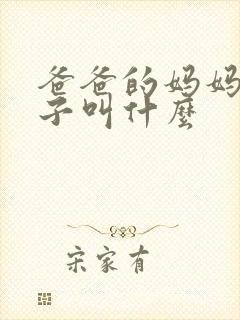 爸爸的妈妈
子叫什麼
宋家有